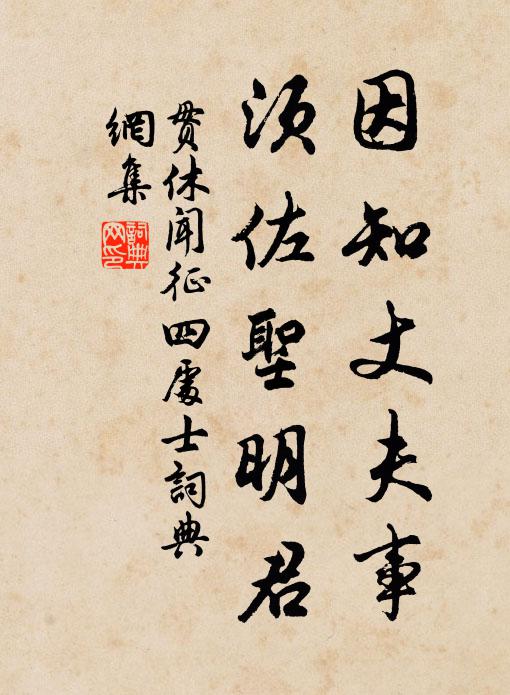 因知丈夫事
须佐聖明君
贯休闻征四處士詞典
網集
詞典
网印